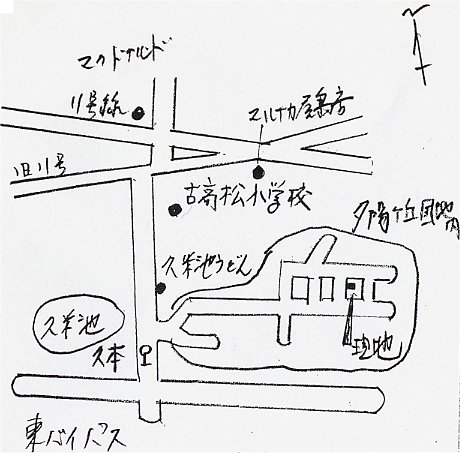 マクドナルド
11号線
マルナカ屋島店
旧11号
古高松小学校
夕陽ヶ丘団地内
久米池うどん
久米池
久本
現地
東バイパス